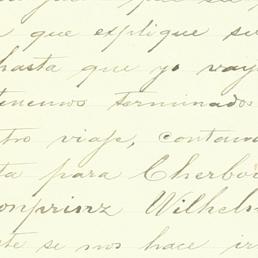 que explique su
hasta que yo vay
tenemos terminados
tro viaje, contam
ta para Cherbo
onprinz Wilhelm
te se nos hace ir